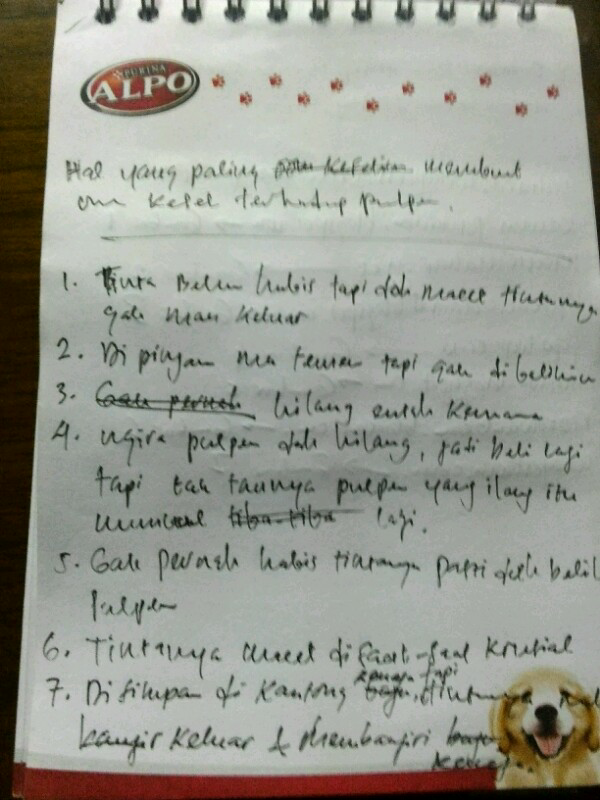 PURINA
ALPO
Hal yang paling membuat
om kesel terhadap pulpen.
1. Tinta Belum habis tapi dah macet tintanya
gak mau keluar
2. Di pinjam ma temen tapi gak di balikin
3. Gak pernah hilang entah kemana
4. ngira pulpen dah hilang, jadi beli lagi
tapi tak taunya pulpen yang ilang itu
muncul tiba-tiba lagi.
5. Gak pernah habis tintanya pasti dah beli
pulpen
6. Tintanya macet di saat-saat krusial
7. Di simpan di kantong kemeja tapi tintanya
banjir keluar & membanjiri baju
kemeja.